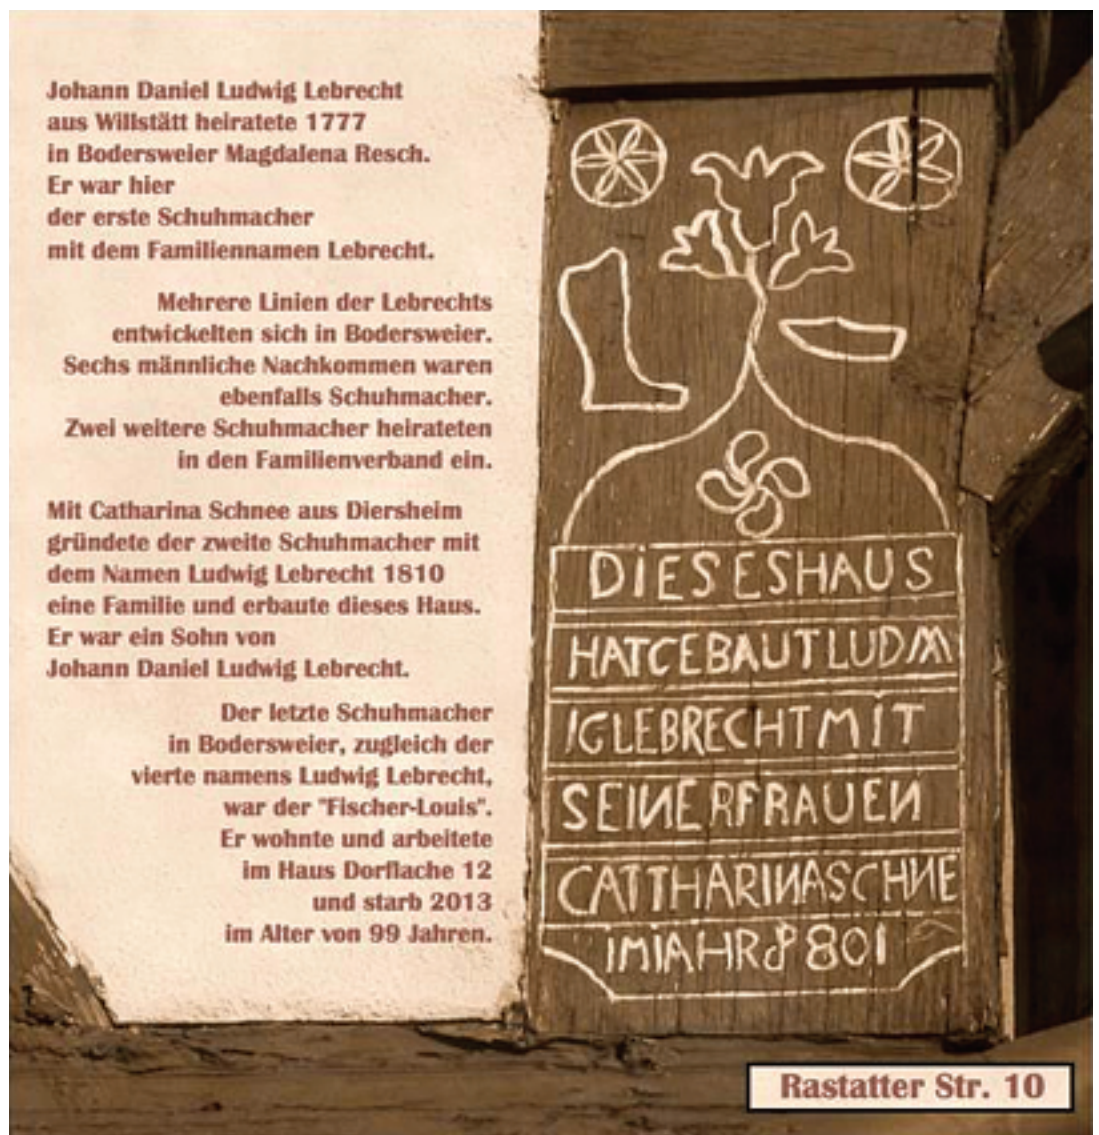 Johann Daniel Ludwig Lebrecht
aus Willstätt heiratete 1777
in Bodersweier Magdalena Resch.
Er war hier
der erste Schuhmacher
mit dem Familiennamen Lebrecht.
Mehrere Linien der Lebrechts
entwickelten sich in Bodersweier.
Sechs männliche Nachkommen waren
ebenfalls Schuhmacher.
Zwei weitere Schuhmacher heirateten
in den Familienverband ein.
Mit Catharina Schnee aus Diersheim
gründete der zweite Schuhmacher mit
dem Namen Ludwig Lebrecht 1810
eine Familie und erbaute dieses Haus.
Er war ein Sohn von
Johann Daniel Ludwig Lebrecht.
Der letzte Schuhmacher
in Bodersweier, zugleich der
vierte namens Ludwig Lebrecht,
war der "Fischer-Louis".
Er wohnte und arbeitete
im Haus Dorflache 12
und starb 2013
im Alter von 99 Jahren.
DiESESHAUS
HATCEBAUTLUDW
IGLEBRECHTMiT
SEINERFRAUEN
CATTHARINASCHNE
iMiAHR 1801
Rastatter Str. 10